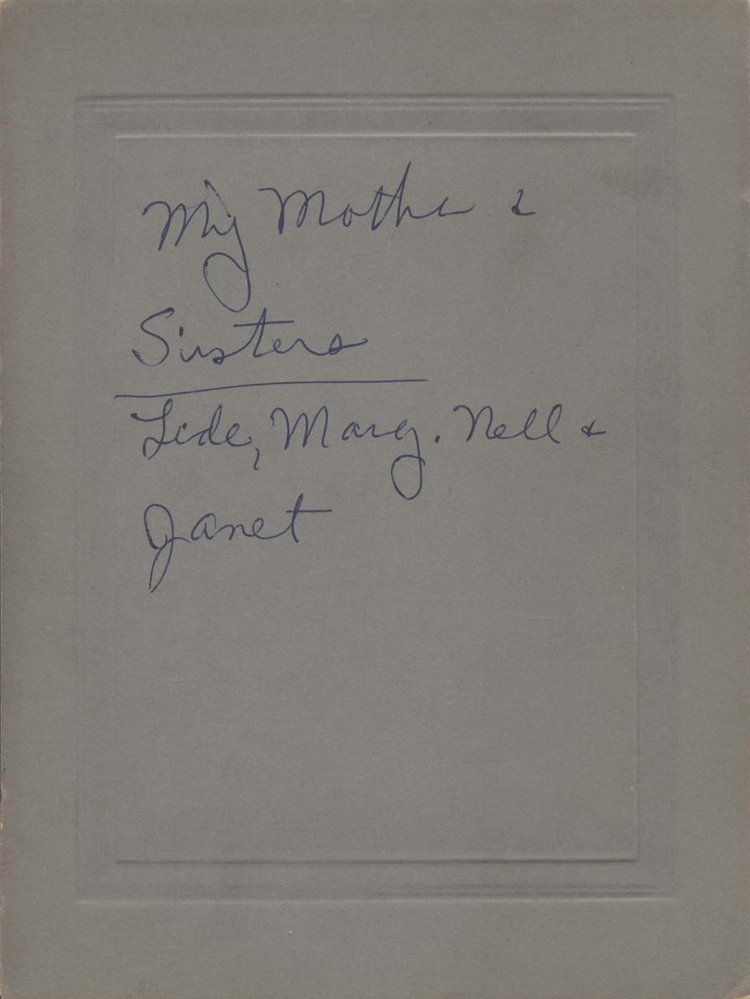 My Mother &
Sisters
Lede, Marg. Nell &
Janet